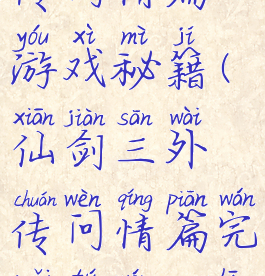 yóu xì mì jí
游戏秘籍(
xiān jiàn sān wài
仙剑三外
chuán wèn qíng piān wán
传问情篇完